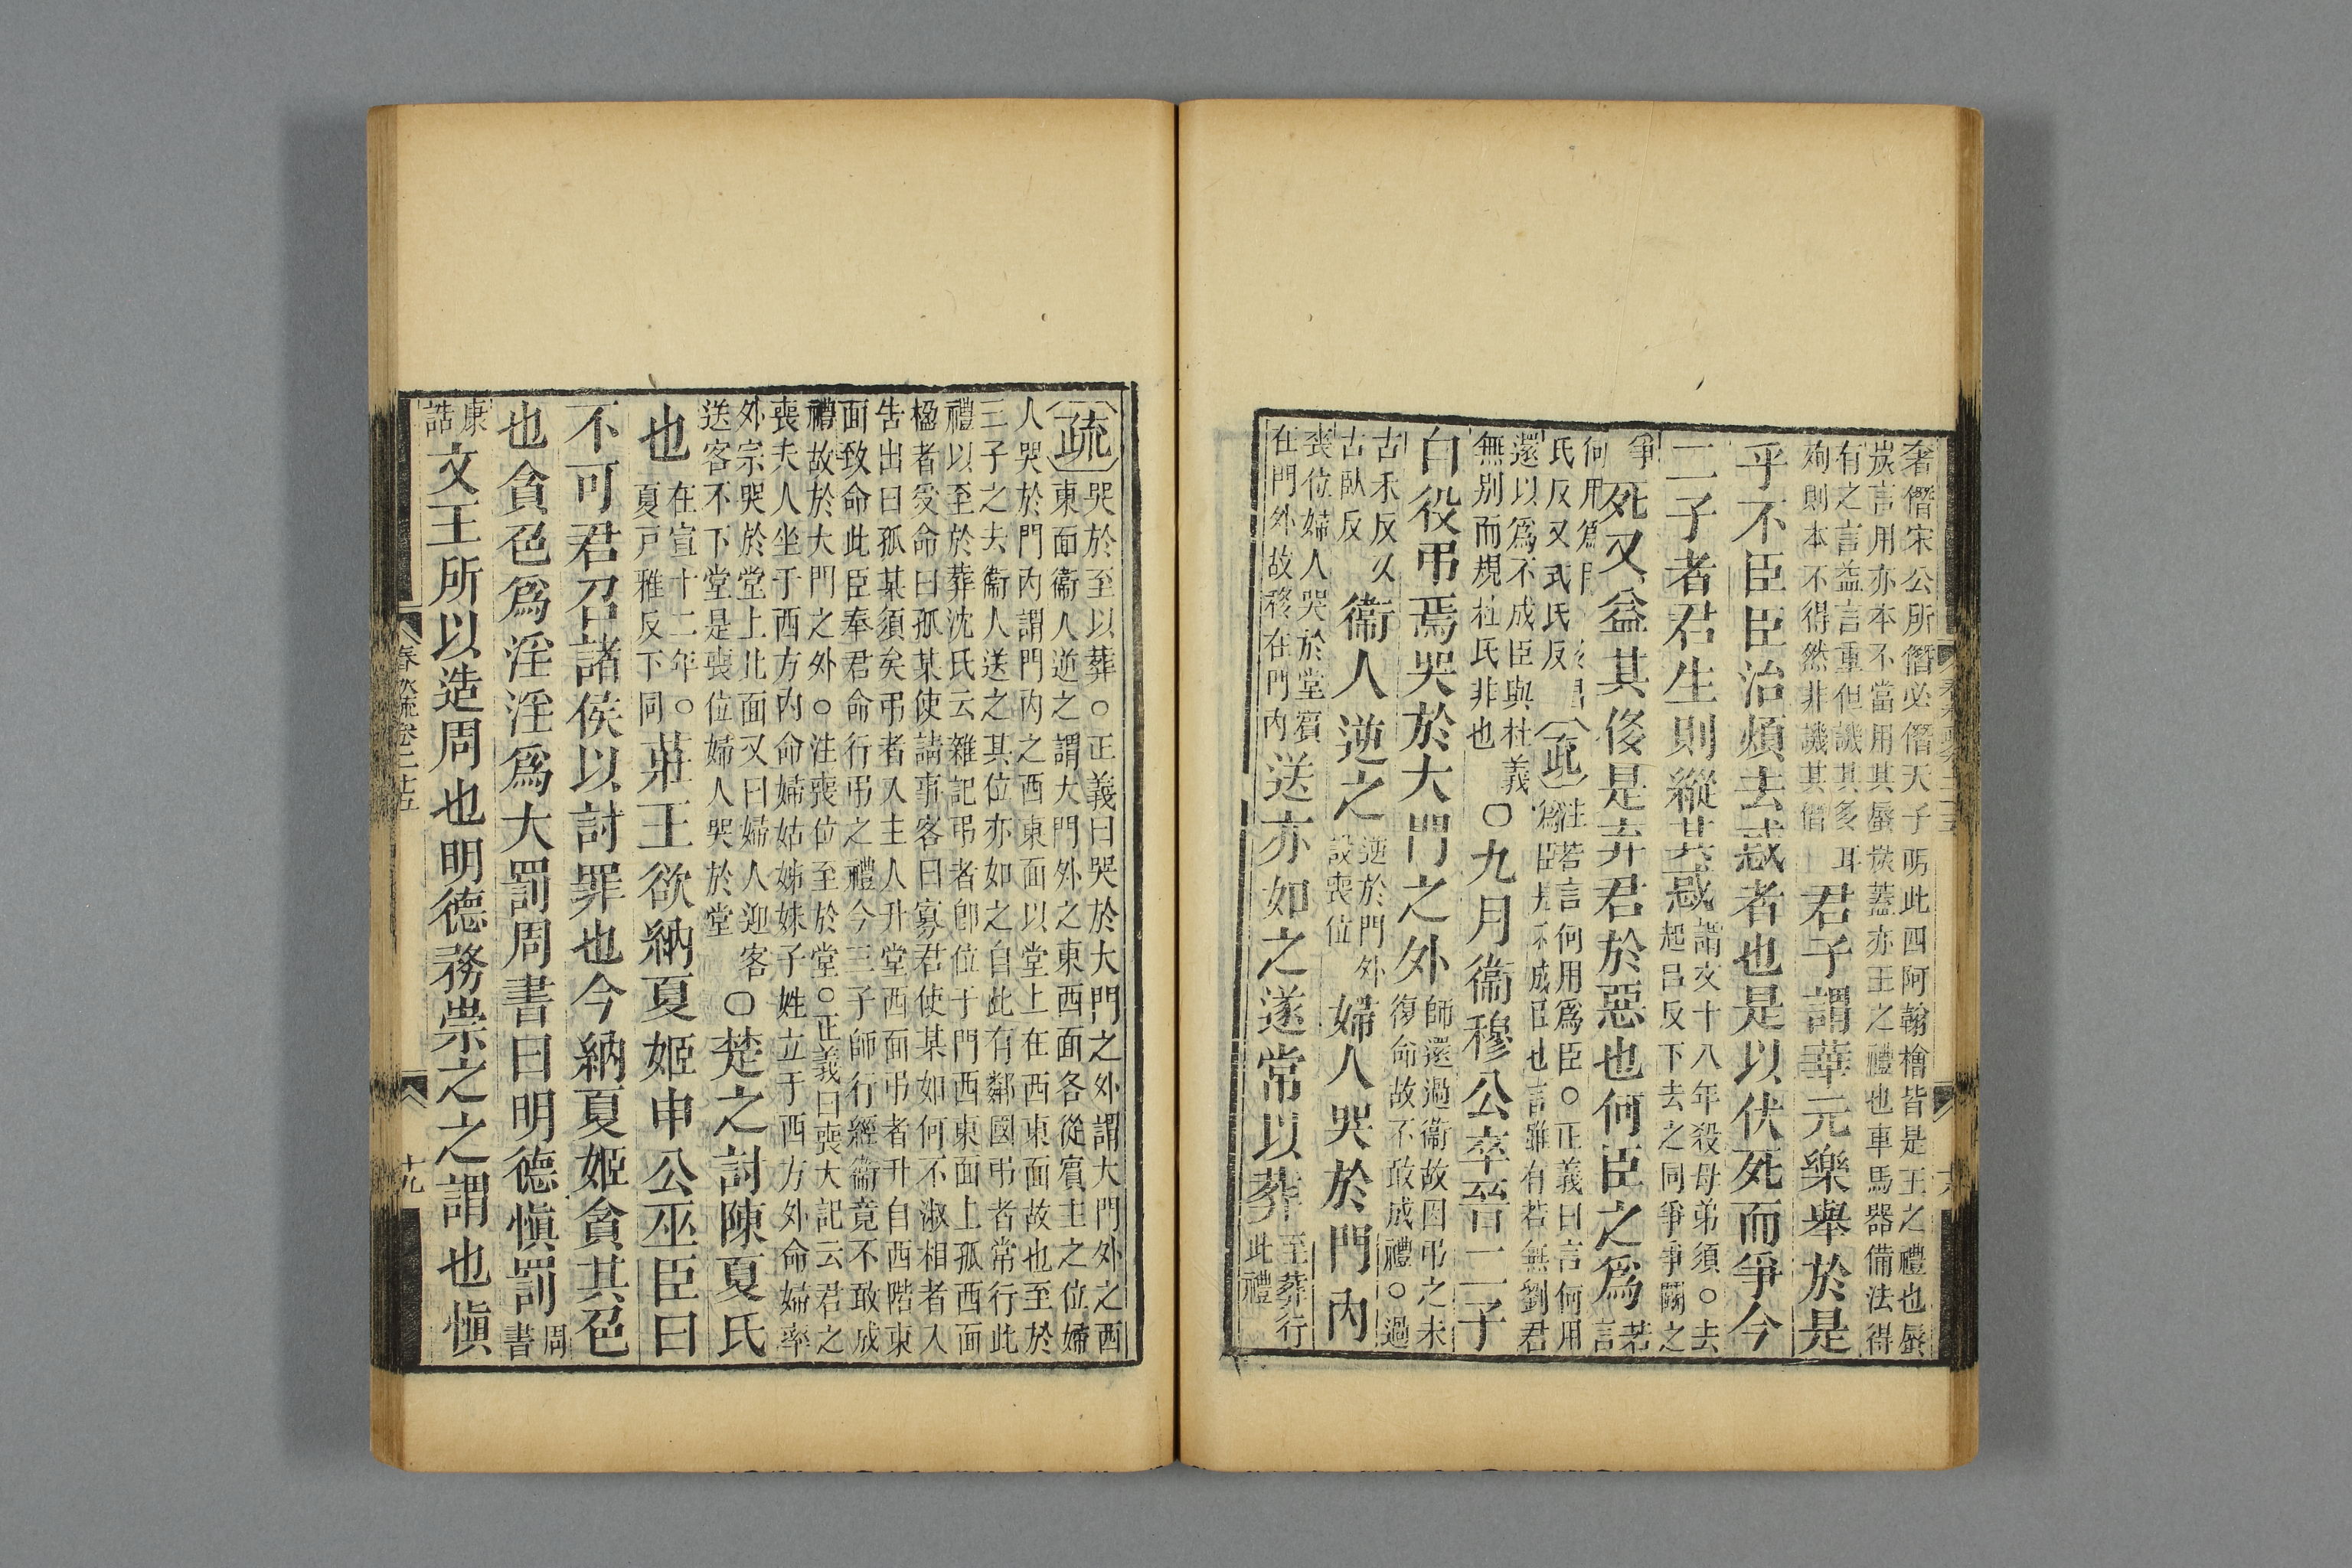 奢僭宋公所僭必僭天子明此四阿翰檜皆是王之禮也蜃
炭言用亦本不當用其蜃炭蓋亦王之禮也車馬器備法得
有之言益言重但譏其多耳
殉則本不得然非譏其僭
君子謂華元樂舉於是
乎不臣臣治煩去惑者也是以伏死而爭今
二子者君生則縱其惑
謂文十八年殺母弟須○去
起呂反下去之同爭爭鬭之
爭
死又益其侈是弃君於惡也何臣之爲
若
言
何用爲
氏反又式氏反
疏
注若言何用爲臣○正義曰言何用
爲臣是不成臣也言雖有若無劉君
還以爲不成臣與杜義
無別而規杜氏非也
○九月衞穆公卒晉二子
自役弔焉哭於大門之外
師還過衞故因弔之未
復命故不敢成禮○過
古禾反又
古臥反
衞人逆之
逆於門外
設喪位
婦人哭於門內
喪位婦人哭於堂賓
在門外故移在門內
送亦如之遂常以葬
至葬行
此禮
疏
哭於至以葬○正義曰哭於大門之外謂大門外之西
東面衞人逆之謂大門外之東西面各從賓主之位婦
人哭於門內謂門內之西東面以堂上在西東面故也至於
三子之去衞人送之其位亦如之自此有鄰國弔者常行此
禮以至於葬沈氏云雜記弔者卽位于門西東面上孤西面
楹者受命曰孤某使請事客曰寡君使某如何不淑相者入
告出曰孤某須矣弔者入主人升堂西面弔者升自西階東
面致命此臣奉君命行弔之禮今三子師行經衞竟不敢成
禮故於大門之外○注喪位至於堂○正義曰喪大記云君之
喪夫人坐于西方內命婦姑姊妹子姓立于西方外命婦率
外宗哭於堂上北面又曰婦人迎客
送客不下堂是喪位婦人哭於堂
○楚之討陳夏氏
也
在宣十二年○
夏戸雅反下同
莊王欲納夏姬申公巫臣曰
不可君召諸侯以討罪也今納夏姬貪其色
也貪色爲淫淫爲大罰周書曰明德愼罰
周
書
康
誥
文王所以造周也明德務崇之之謂也愼
春秋疏卷二十五
十九